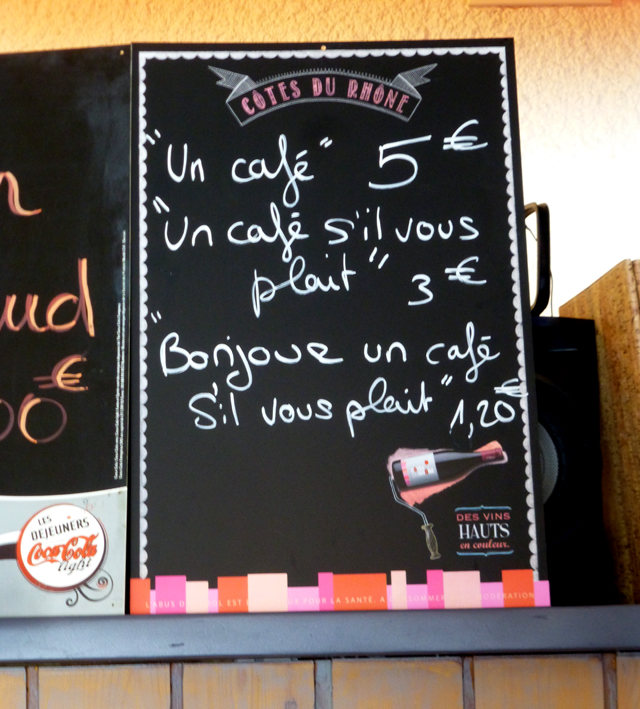 CÔTES DU RHÔNE
"Un café" 5 €
"Un café s'il vous
plait" 3 €
"Bonjour un café
S'il vous plait" 1,20 €
DES VINS
HAUTS
en couleur.
POUR LA SANTÉ. À
LES
DÉJEUNERS
Coca-Cola
light